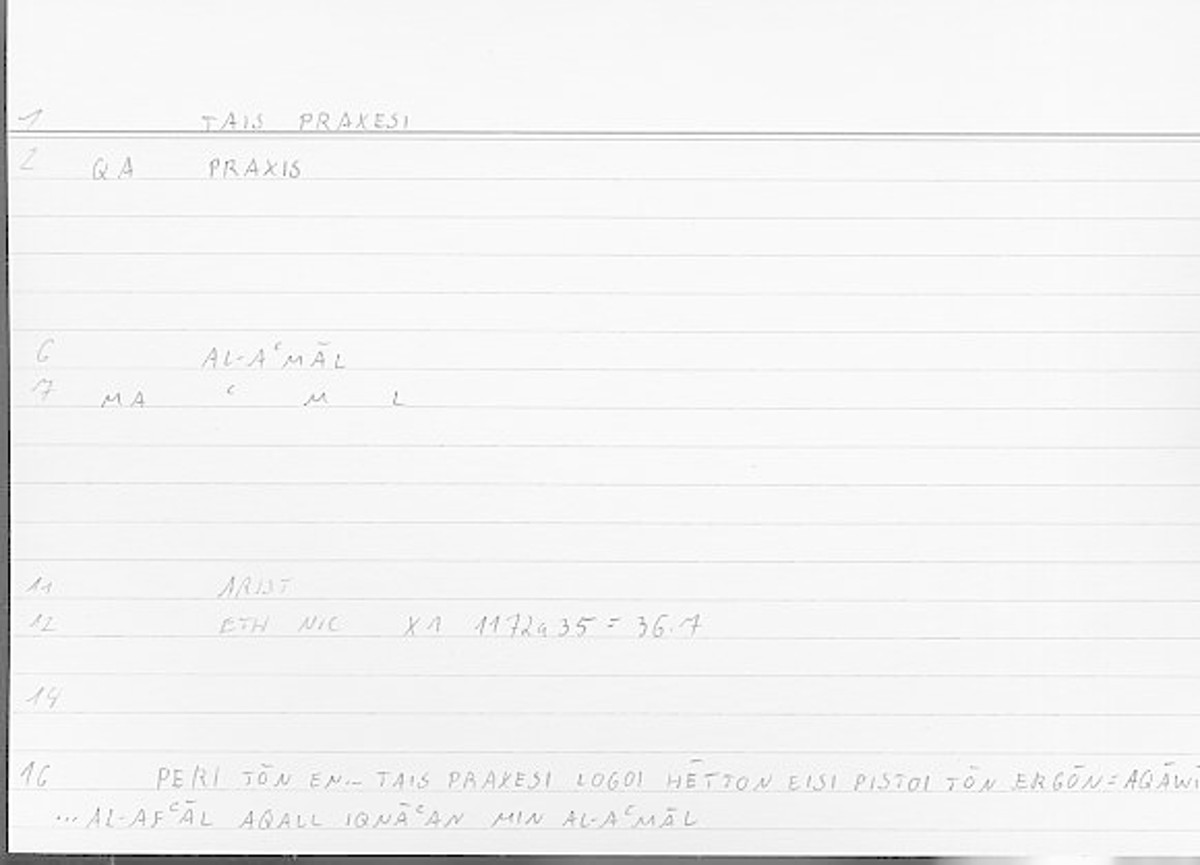 1 TAIS PRAXESI
2 QA PRAXIS
6 AL-AʿMĀL
7 MA ʿ M L
11 ARIST
12 ETH NIC X1 1172a35 = 36.7
14
16 PERI TŌN EN... TAIS PRAXESI LOGOI HĒTTON EISI PISTOI TŌN ERGŌN = AQĀWĪ
... AL-AFʿĀL AQALL IQNĀʿAN MIN AL-AʿMĀL